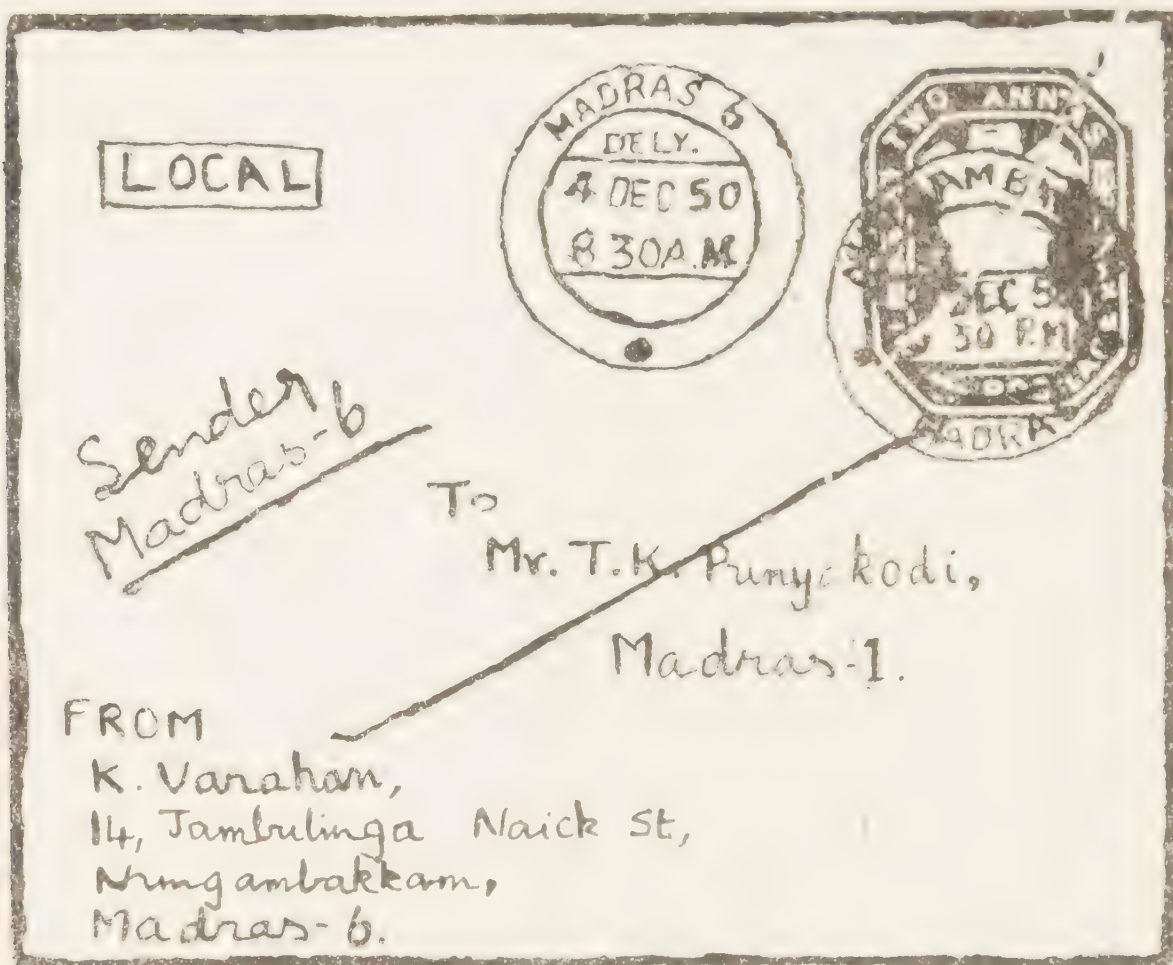 LOCAL
MADRAS 6
DELY.
4 DEC 50
8 30 A.M
TWO ANNAS
AMB
DEC 5
30 P.M
MADRA
Sender
Madras-6
To
Mr. T.K. Punyakodi,
Madras-1.
FROM
K. Varahan,
14, Jambulinga Naick St,
Nungambakkam,
Madras-6.